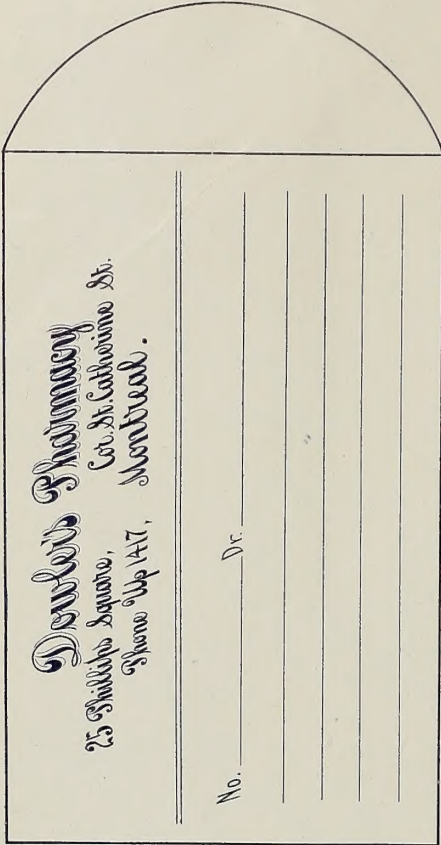 Dowler's Pharmacy
25 Phillips Square, Cor. St. Catherine St.
Phone Up 1417, Montreal.
No. Dr.